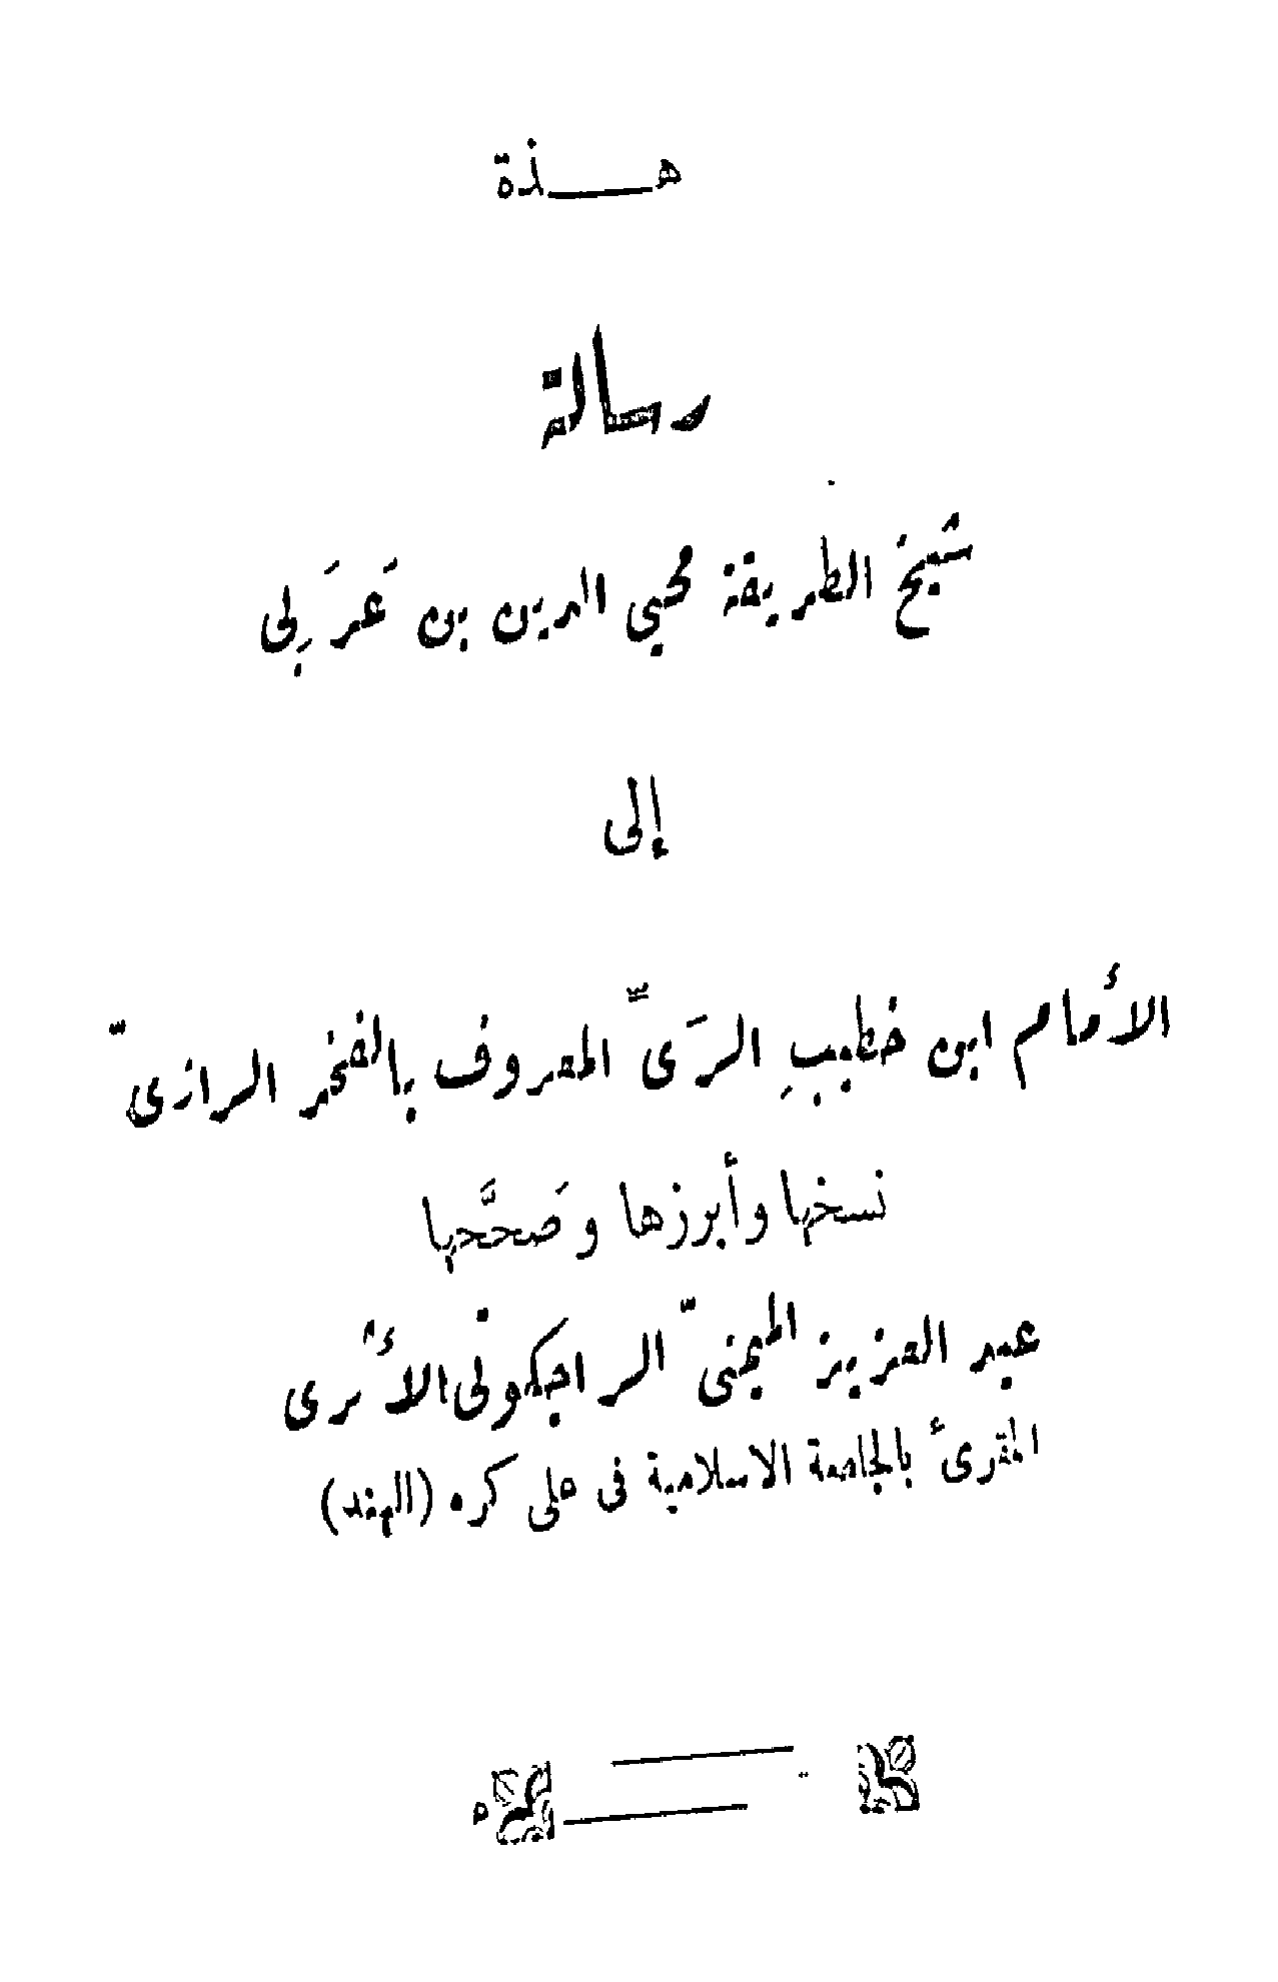 هـــذة
رسالة
شيخ الطريقة محيي الدين بن عَرَبِى
إلى
الأمام ابن خطيبِ الرَىّ المعروف بالفخر الرازىّ
نسخها وأبرزها وصَححَّها
عبد العزيز الميمنىّ الراجكوتى الأثرى
المقرئ بالجامعة الاسلامية فى على كره (الهند)